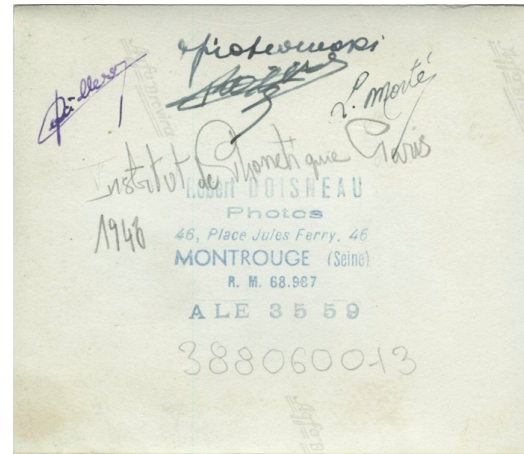 L. Morté
Institut de Phonetique Paris
1948
Robert DOISNEAU
Photos
46, Place Jules Ferry, 46
MONTROUGE (Seine)
R. M. 68.987
ALE 35 59
388060013